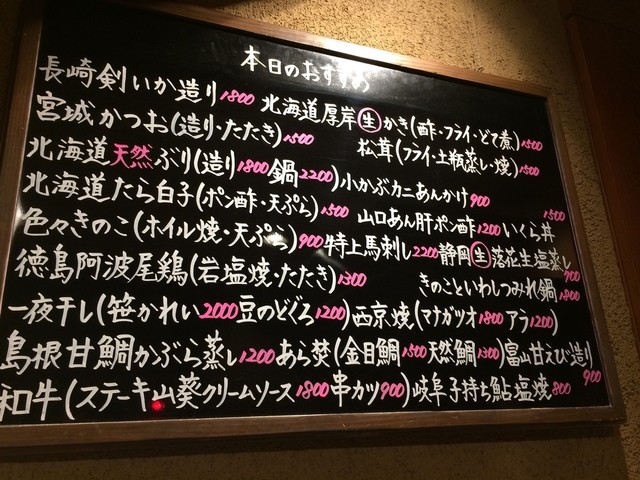 本日のおすすめ
長崎剣いか造り1800 北海道厚岸生かき(酢・フライ・どて煮)1500
宮城かつお(造り・たたき)1500 松茸(フライ・土瓶蒸し・焼)1500
北海道天然ぶり(造り1800鍋2200)小かぶカニあんかけ900
北海道たら白子(ポン酢・天ぷら)1500 山口あん肝ポン酢1200いくら丼1500
色々きのこ(ホイル焼・天ぷら)900特上馬刺し2200静岡生落花生塩蒸し900
徳島阿波尾鶏(岩塩焼・たたき)1300 きのこといわしつみれ鍋1800
一夜干し(笹かれい2000豆のどぐろ1200)西京焼(マナガツオ1800アラ1200)
島根甘鯛かぶら蒸し1200あら焚(金目鯛1500天然鯛1300)富山甘えび造り900
和牛(ステーキ山葵クリームソース1800串カツ900)岐阜子持ち鮎塩焼800